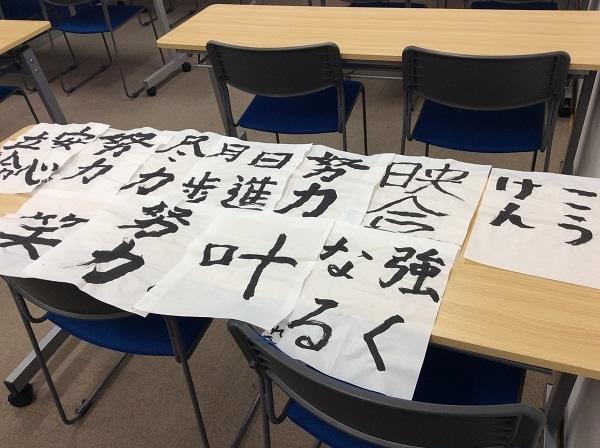 こう
けん
映合
努力
日進
月歩
尽力
努力
安心
強く
なる
叶
努力
笑